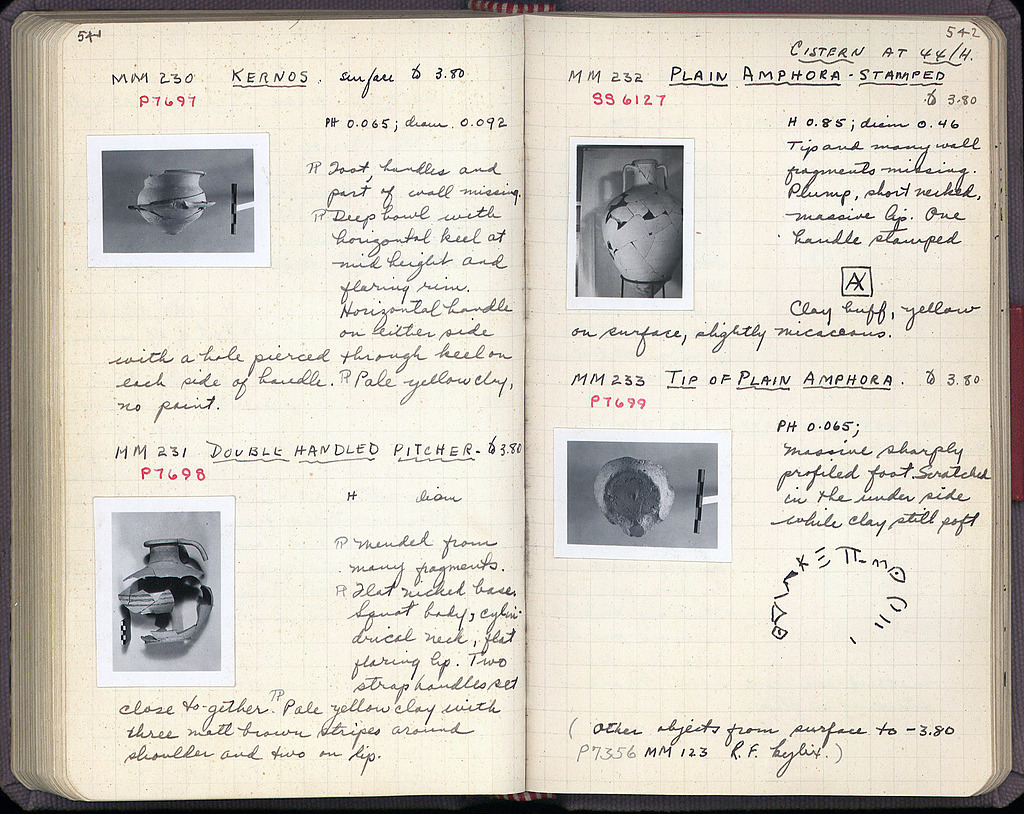 541
MM 230 KERNOS. surface to 3.80
P7697
PH 0.065; diam. 0.092
Foot, handles and
part of wall missing.
Deep bowl with
horizontal keel at
mid height and
flaring rim.
Horizontal handle
on either side
with a hole pierced through keel on
each side of handle. Pale yellow clay,
no paint.
MM 231 DOUBLE HANDLED PITCHER - to 3.80
P7698
H diam
Mended from
many fragments.
Flat ricked base.
Squat body, cylin-
drical neck, flat
flaring lip. Two
strap handles set
close to-gether. Pale yellow clay with
three matt brown stripes around
shoulder and two on lip.
542
CISTERN AT 44/H.
MM 232 PLAIN AMPHORA - STAMPED
SS 6127
to 3.80
H 0.85; diam 0.46
Tip and many wall
fragments missing.
Plump, short necked,
massive lip. One
handle stamped
Clay buff, yellow
on surface, slightly micaceous.
MM 233 TIP OF PLAIN AMPHORA. to 3.80
P7699
PH 0.065;
Massive sharply
profiled foot. Scratched
in the under side
while clay still soft
( Other objects from surface to -3.80
P7356 MM 123 R.F. kylix. )